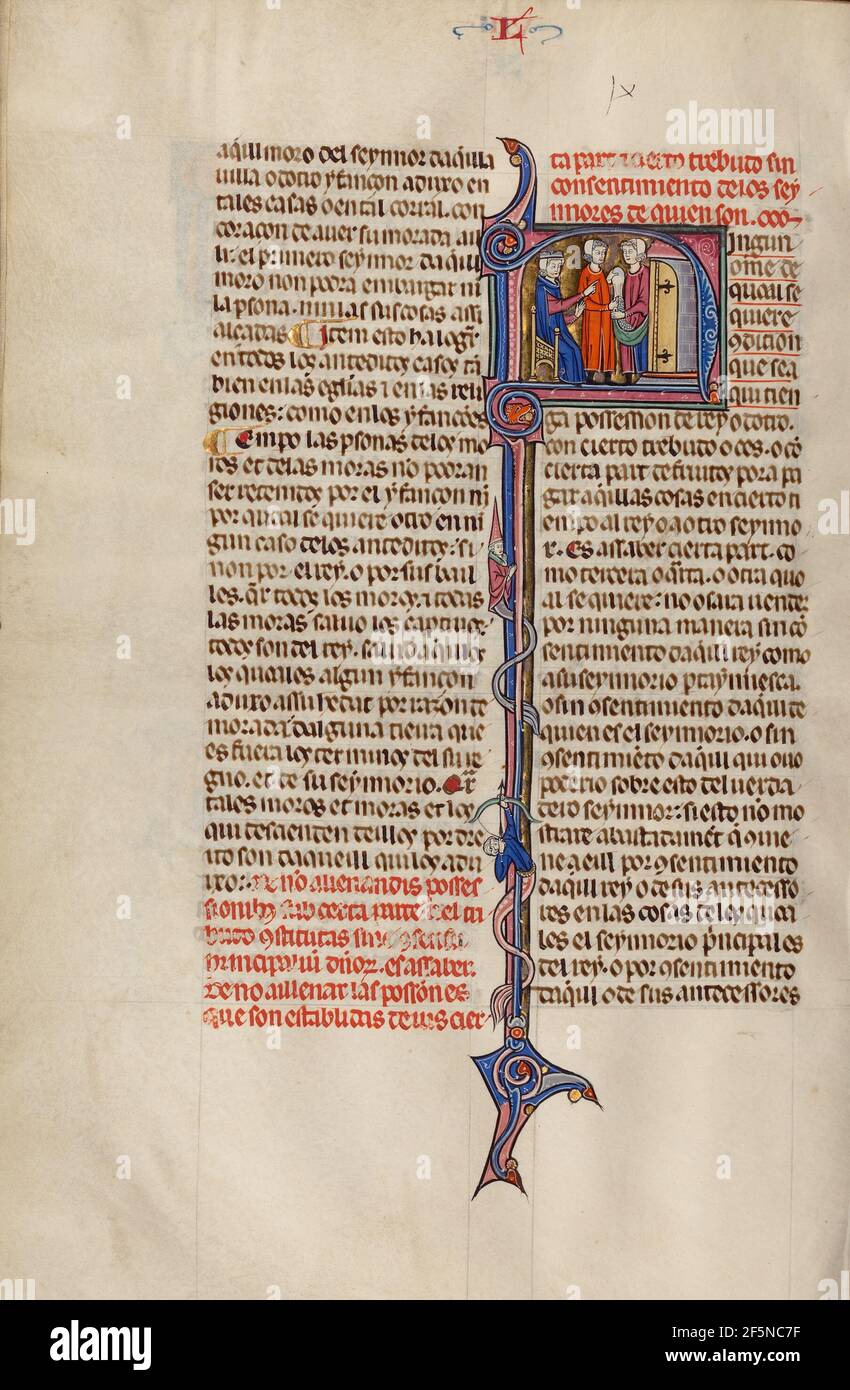 aqui moro del seynnor daq̃lla
uilla o dotro yfançon aduxo en
tales casas o en tal corral. con
coraçon de auer su morada aui
li: el primero seynnor daquel
moro non podra embargar ni
la p̃sona. ni nullas sus cosas assi
alçadas. Item esto ha logar
en todos los anteditos casos tã
bien en las eglĩas ⁊ en las reli
giones: como en los yfançones
Empo las p̃sonas delos mo
ros et delas moras nõ podran
ser retenidos por el yfançon ni
por qual se quiere otro en ni
gun caso delos anteditos: si
non por el rey. o por sus bail
les. q̃r todos los moros ⁊ todas
las moras saluo los captiuos:
todos son del rey. saluo aq̃llos
los quales algun yfançon
aduxo assu hedat por razon de
morada dalguna tierra que
es fuera los terminos del su re
gno. et de su seynnorio. Q̃r
tales moros et moras et los
qui desçenden deillos por dre
ito son daqueill qui los adu
xo: De nõ alienandis posses
sionibus sub certa parte uel tri
buto 9stitutis sine 9sensu
principaliũ dñorũ. es assaber.
De no allenar las possiones
que son establidas deius cier
L
ta part o cierto trebuto sin
consentimiento delos sey
nnores de quien son.
Ningun
ome de
qual se
quiere
9dicion
que sea
qui tien
ga possession de rey o dotro.
con cierto trebuto o ces. o cõ
cierta part de fruitos pora pa
gar aq̃llas cosas en cierto ti
empo al rey o a otro seynno
r. Es assaber cierta part. co
mo tercera o q̃rta. o otra quo
al se quiere: no osara uender
por ninguna manera sin cõ
sentimiento daq̃l rey como
a su seynnorio p̃taynnesca.
o sin 9sentimento daq̃l de
quien es el seynnorio. o sin
9sentimẽto daqui qui ouo
poderio sobre esto del uerda
dero seynnor: si esto nõ mo
strare abastadamẽt q̃ 9uie
ne a eill por 9sentimiento
daq̃l rey o de sus antecesso
res en las cosas delos qua
les el seynnorio p̃ncipal es
del rey. o por 9sentimiento
daq̃l o de sus antecessores
alamy
Image ID: 2F5NC7F
www.alamy.com